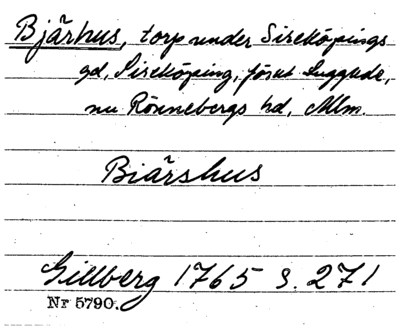 Bjärhus, torp under Sireköpings
gd, Sireköping, förut Luggude,
nu Rönnebergs hd, Mlm.
Biärshus
Gillberg 1765 s. 271
Nr 5790.